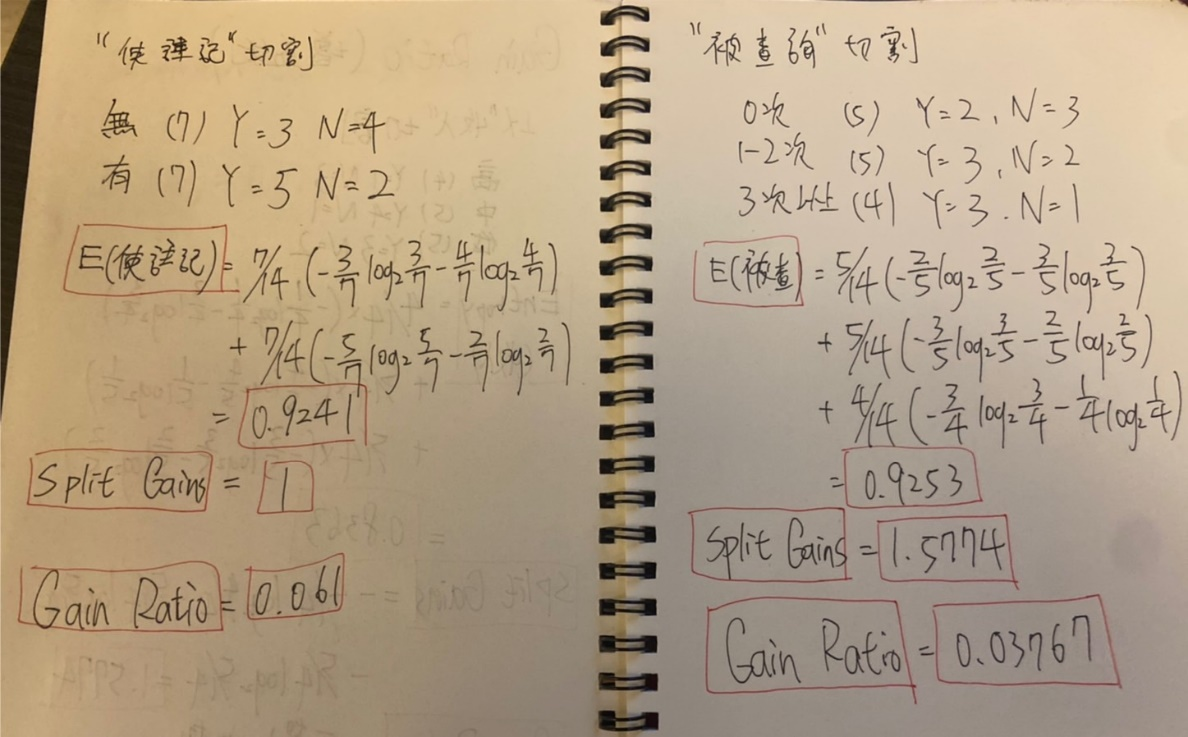 "使謹記"切割
無 (7) Y=3 N=4
有 (7) Y=5 N=2
E(使謹記) = 7/14 (-3/7 log₂ 3/7 - 4/7 log₂ 4/7)
+ 7/14 (-5/7 log₂ 5/7 - 2/7 log₂ 2/7)
= 0.9241
Split Gains = 1
Gain Ratio = 0.061
"被查詢"切割
0次 (5) Y=2, N=3
1-2次 (5) Y=3, N=2
3次以上 (4) Y=3. N=1
E(被查) = 5/14 (-2/5 log₂ 2/5 - 3/5 log₂ 3/5)
+ 5/14 (-3/5 log₂ 3/5 - 2/5 log₂ 2/5)
+ 4/14 (-3/4 log₂ 3/4 - 1/4 log₂ 1/4)
= 0.9253
Split Gains = 1.5774
Gain Ratio = 0.03767